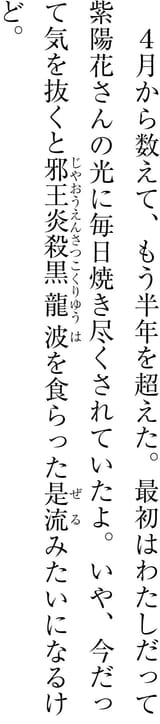 ４月から数えて、もう半年を超えた。最初はわたしだって
紫陽花さんの光に毎日焼き尽くされていたよ。いや、今だっ
て気を抜くと邪王炎殺黒龍波を食らった是流みたいになるけ
ど。
じゃおうえんさつこくりゅうは
ぜる